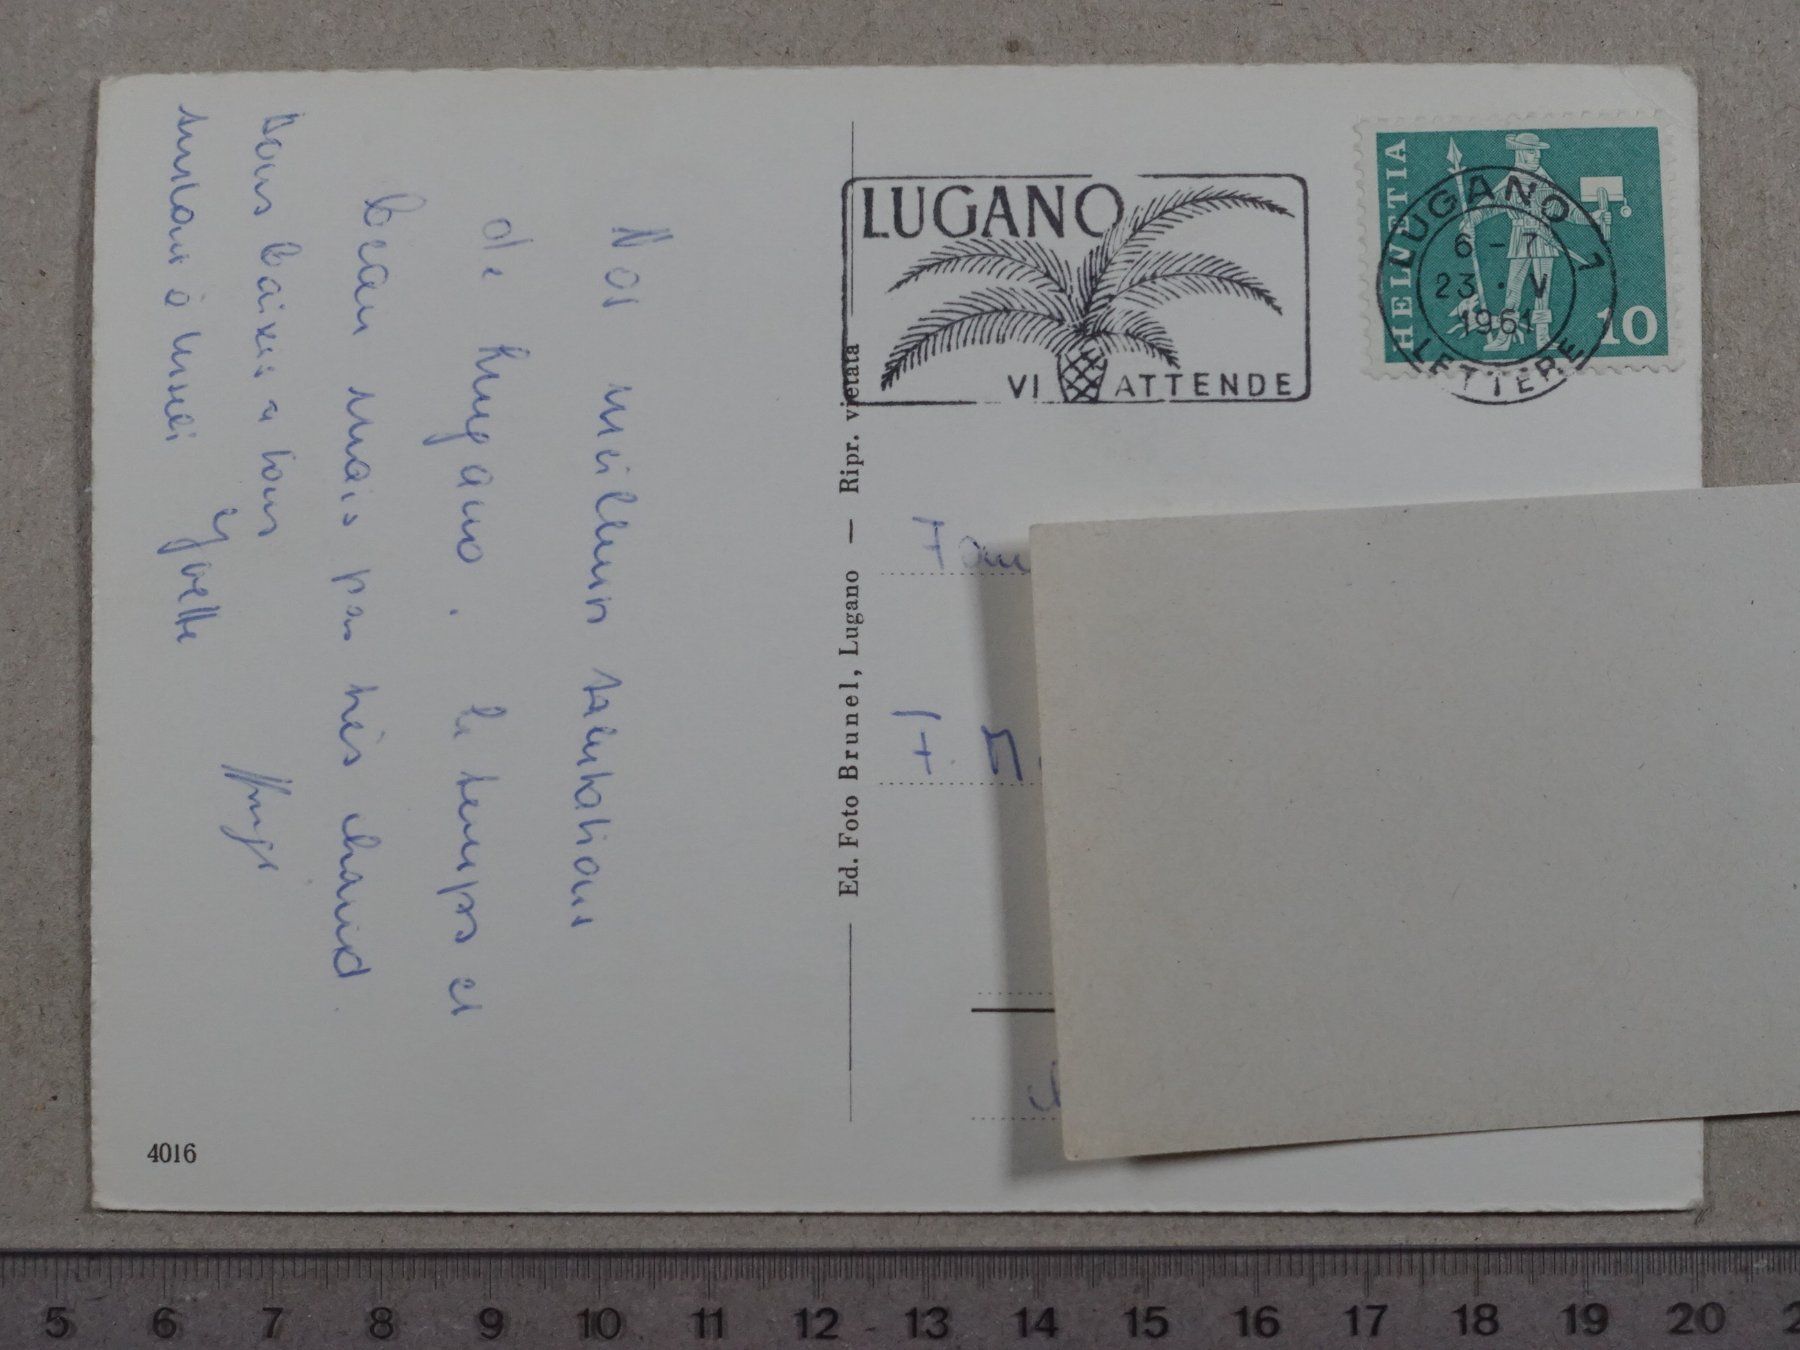 LUGANO
VI ATTENDE
HELVETIA
10
LUGANO 1
6-7
23.V
1961
LETTERE
Nos meilleurs salutations
de Lugano. le temps es
beau mais pas très chaud.
Bons baises a tous
surtout à
Yvette
Ed. Foto Brunel, Lugano — Ripr. vietata
4016
5 6 7 8 9 10 11 12 13 14 15 16 17 18 19 20